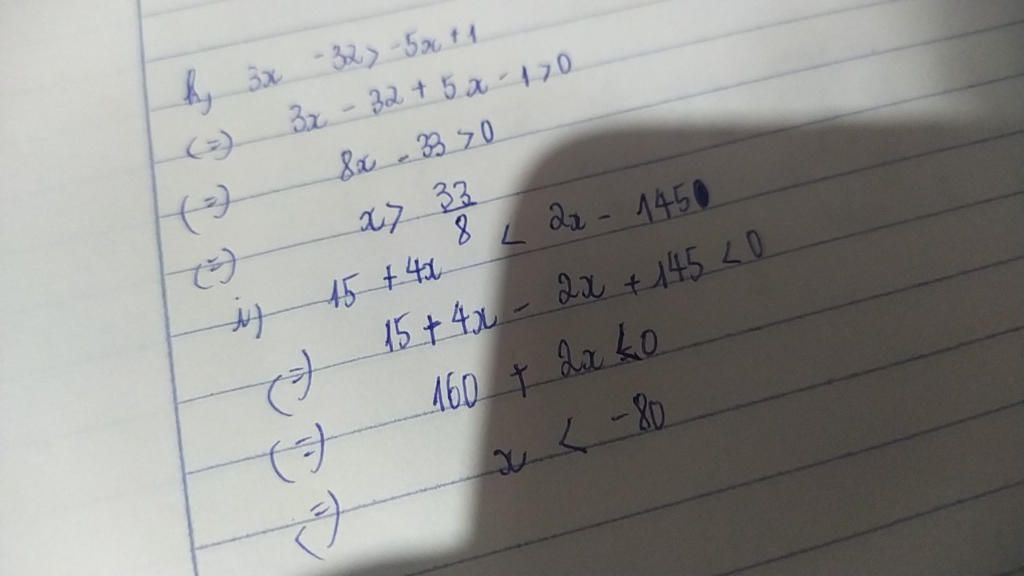 h, 3x - 32 > -5x + 1
(=) 3x - 32 + 5x - 1 > 0
(=) 8x - 33 > 0
(=) x > 33/8
i) 15 + 4x < 2x - 145
(=) 15 + 4x - 2x + 145 < 0
(=) 160 + 2x < 0
(=) x < -80